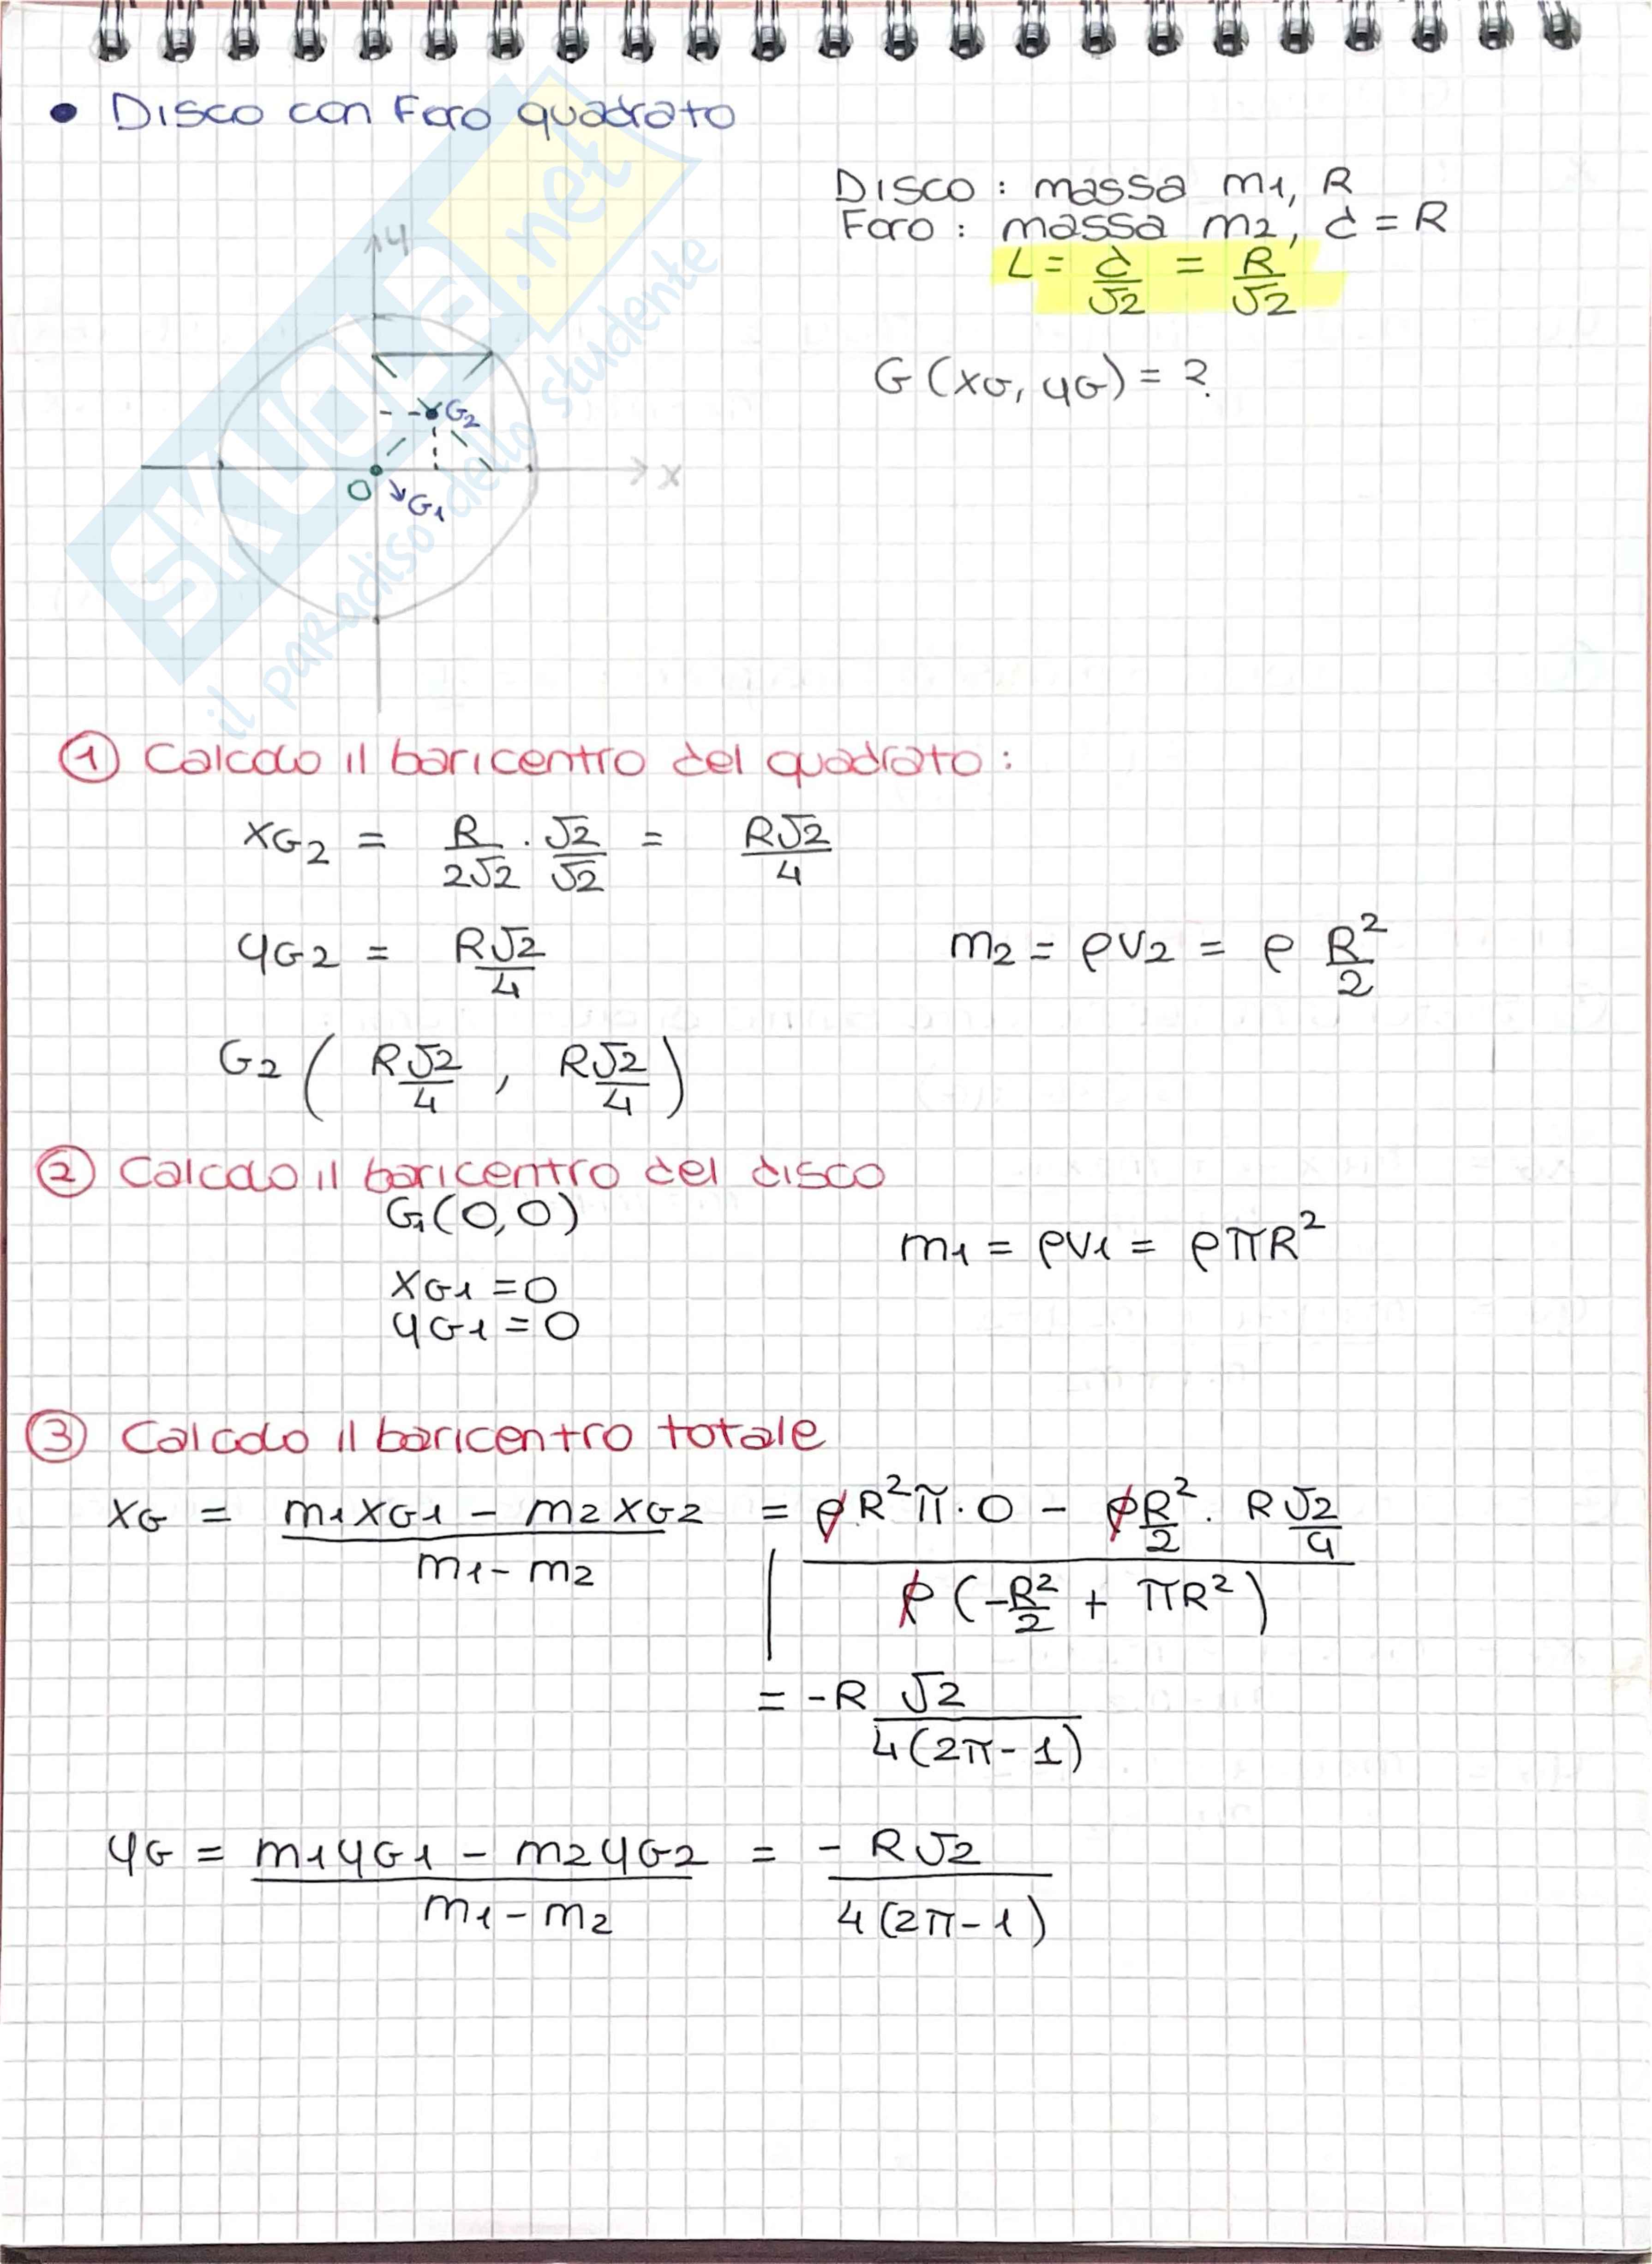 • Disco con Foro quadrato
Disco : massa m1, R
Foro : massa m2, d = R
L = d/√2 = R/√2
G (xG, yG) = ?
y
G2
O
G1
x
SKUOLA.net
il paradiso dello studente
① Calcolo il baricentro del quadrato :
xG2 = R/2√2 · √2/√2 = R√2/4
yG2 = R√2/4
m2 = ρV2 = ρ R²/2
G2 ( R√2/4 , R√2/4 )
② Calcolo il baricentro del disco
G1(0,0)
m1 = ρV1 = ρπR²
xG1 = 0
yG1 = 0
③ Calcolo il baricentro totale
xG = m1xG1 - m2xG2 / m1 - m2 = ρR²π · 0 - ρR²/2 · R√2/4 / ρ(-R²/2 + πR²)
= -R √2/4(2π - 1)
yG = m1yG1 - m2yG2 / m1 - m2 = - R√2/4(2π - 1)